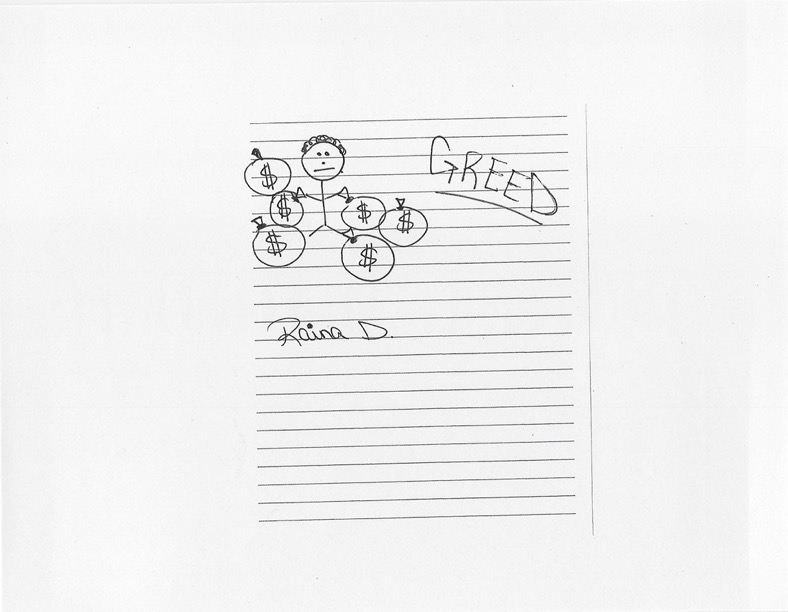 GREED
$
$
$
$
$
$
Raina D.